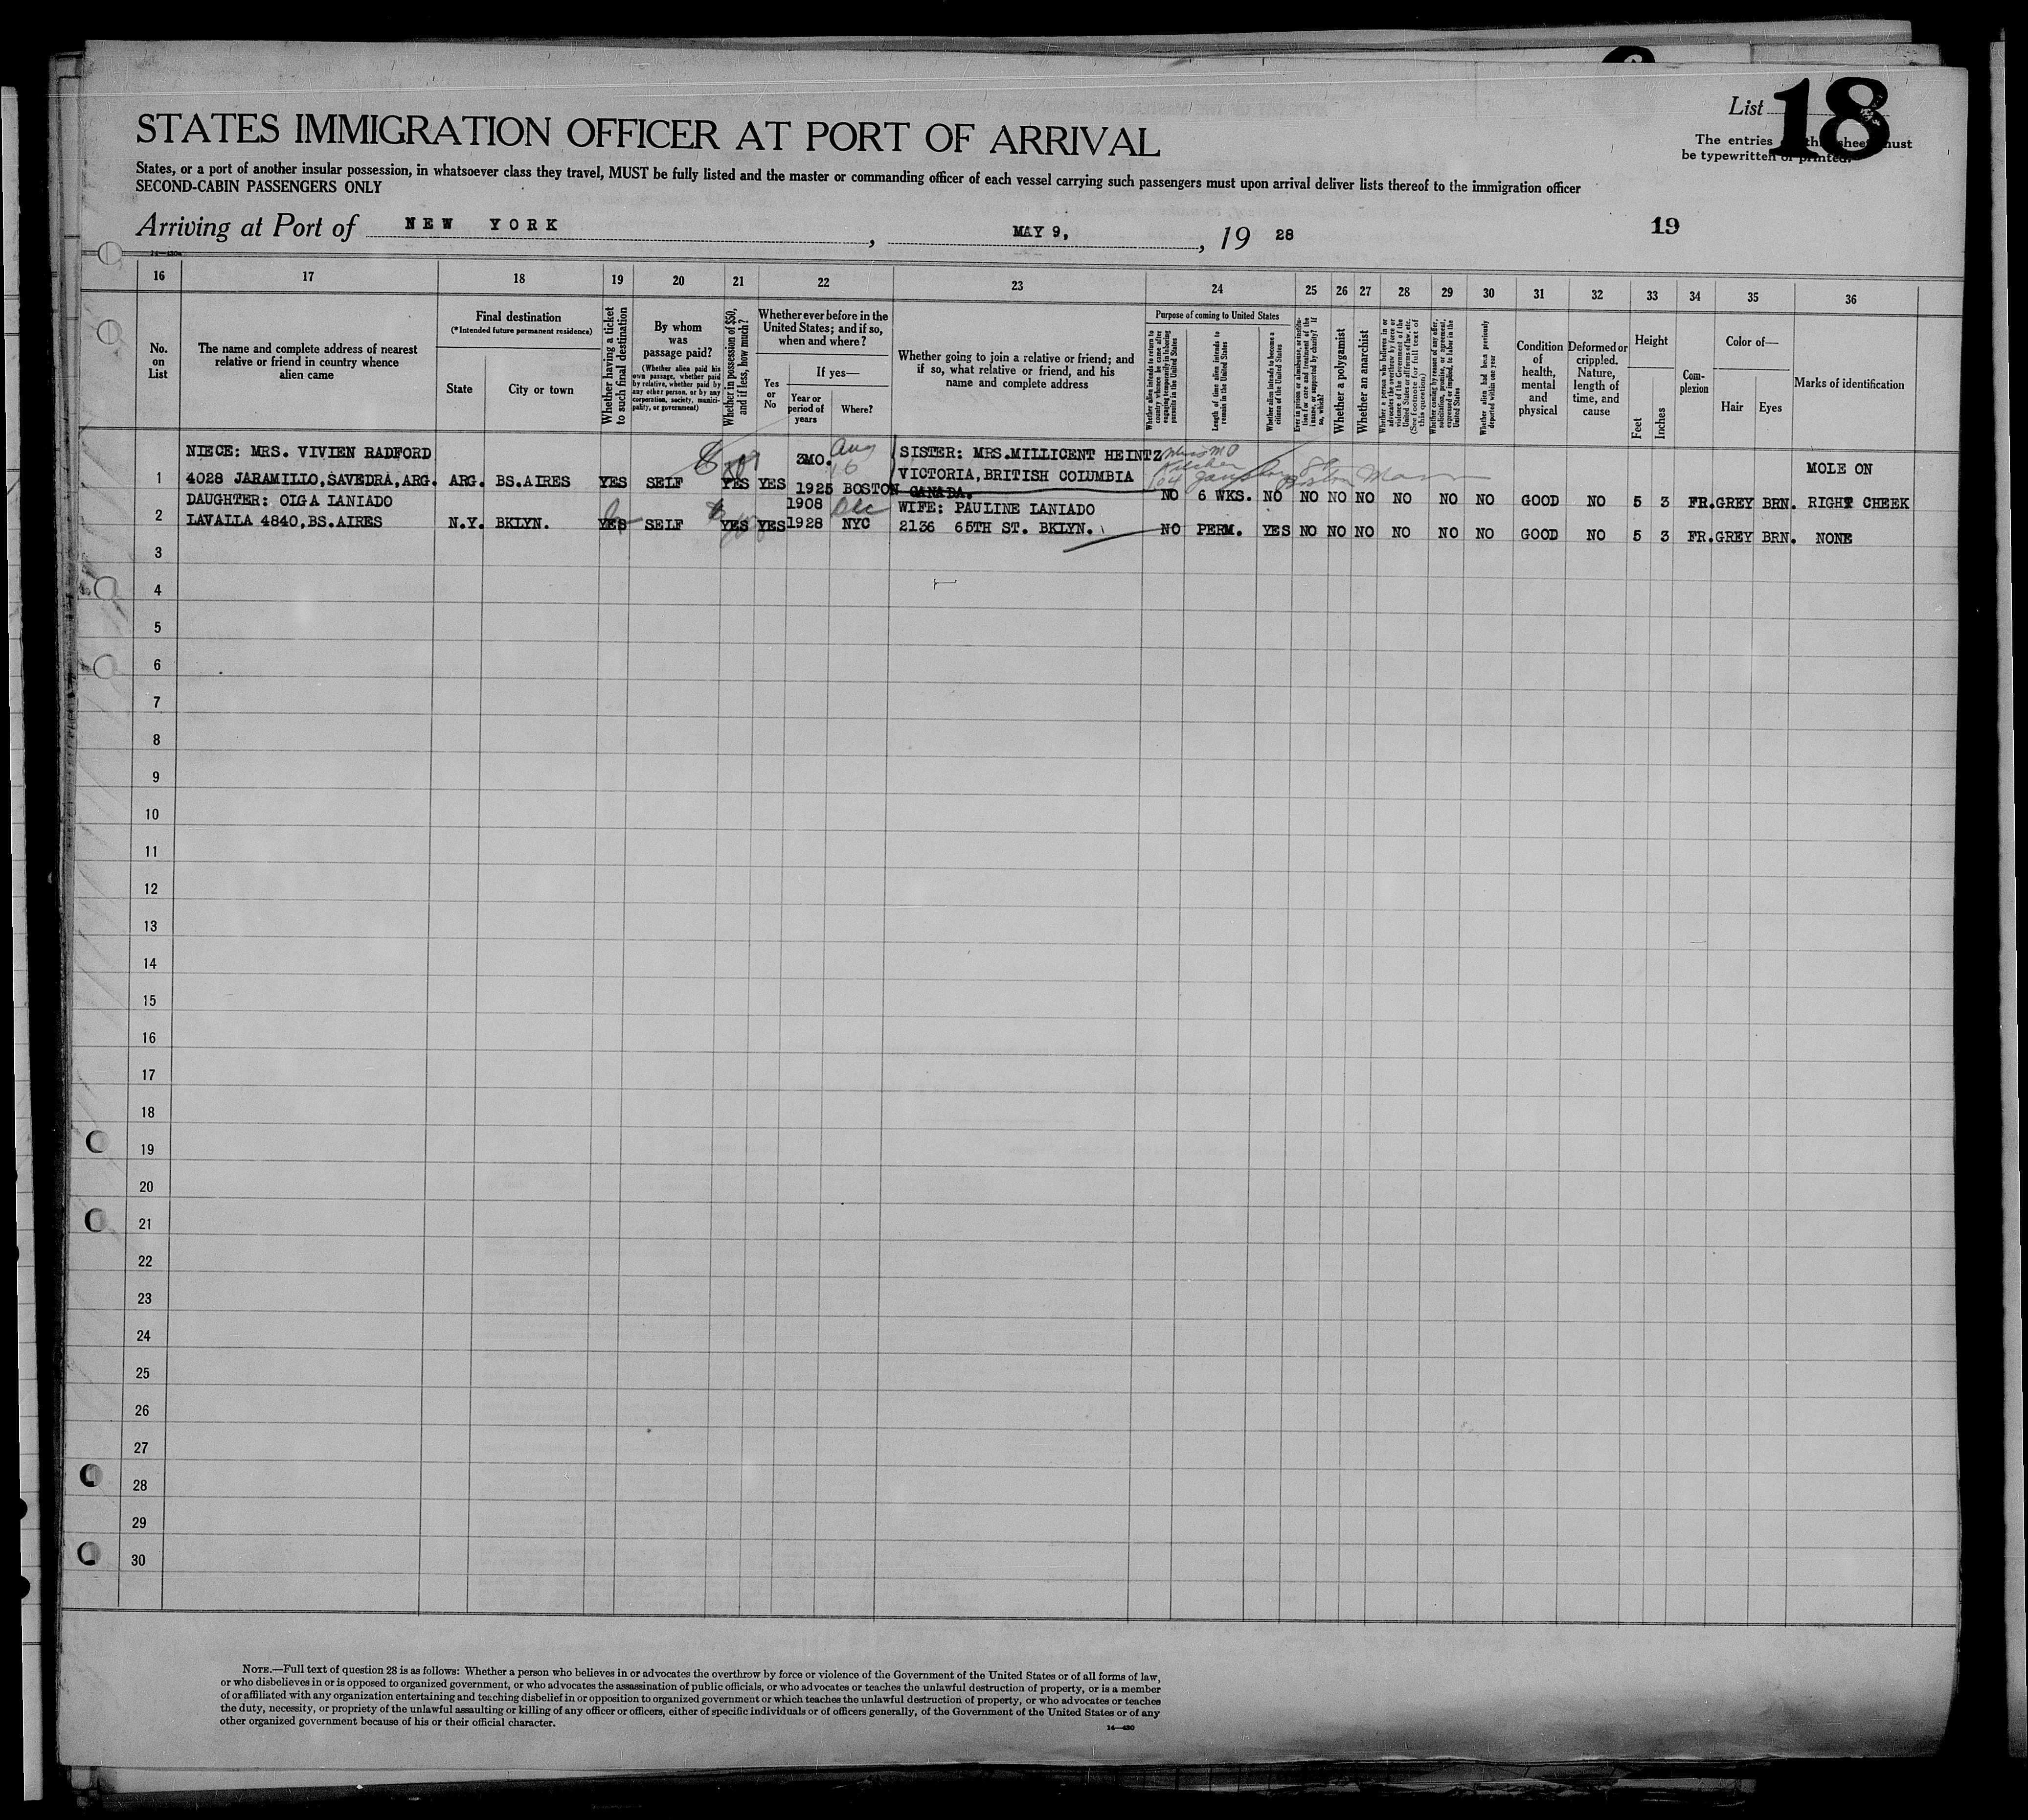 List 18
STATES IMMIGRATION OFFICER AT PORT OF ARRIVAL
The entries on this sheet must
be typewritten or printed.
States, or a port of another insular possession, in whatsoever class they travel, MUST be fully listed and the master or commanding officer of each vessel carrying such passengers must upon arrival deliver lists thereof to the immigration officer
SECOND-CABIN PASSENGERS ONLY
Arriving at Port of NEW YORK, MAY 9, 19 28
19
16 17 18 19 20 21 22 23 24 25 26 27 28 29 30 31 32 33 34 35 36
No.
on
List
The name and complete address of nearest
relative or friend in country whence
alien came
Final destination
(*Intended future permanent residence)
State
City or town
Whether having a ticket
to such final destination
By whom
was
passage paid?
(Whether alien paid his
own passage, whether paid
by relative, whether paid by
any other person, or by any
corporation, society, munici-
pality, or government)
Whether in possession of $50,
and if less, how much?
Whether ever before in the
United States; and if so,
when and where?
Yes
or
No
If yes—
Year or
period of
years
Where?
Whether going to join a relative or friend; and
if so, what relative or friend, and his
name and complete address
Purpose of coming to United States
Whether alien intends to return to
country whence he came after
engaging temporarily in laboring
pursuits in the United States
Length of time alien intends to
remain in the United States
Whether alien intends to become a
citizen of the United States
Ever in prison or almshouse, or institu-
tion for care and treatment of the
insane, or supported by charity? If
so, which?
Whether a polygamist
Whether an anarchist
Whether a person who believes in or
advocates the overthrow by force or
violence of the Government of the
United States or all forms of law, etc.
(See footnote for full text of
this question)
Whether coming by reason of any offer,
solicitation, promise, or agreement,
expressed or implied, to labor in the
United States
Whether alien had been previously
deported within one year
Condition
of
health,
mental
and
physical
Deformed or
crippled.
Nature,
length of
time, and
cause
Height
Feet
Inches
Com-
plexion
Color of—
Hair
Eyes
Marks of identification
NIECE: MRS. VIVIEN RADFORD 3MO. Aug 16 SISTER: MRS.MILLICENT HEINTZ MOLE ON
1 4028 JARAMILLO,SAVEDRA,ARG. ARG. BS.AIRES YES SELF YES YES 1925 BOSTON VICTORIA,BRITISH COLUMBIA Boston Mass
CANADA. NO 6 WKS. NO NO NO NO NO NO NO GOOD NO 5 3 FR. GREY BRN. RIGHT CHEEK
DAUGHTER: OLGA LANIADO 1908 Dec WIFE: PAULINE LANIADO
2 LAVALLA 4840,BS.AIRES N.Y. BKLYN. YES SELF YES YES 1928 NYC 2136 65TH ST. BKLYN. NO PERM. YES NO NO NO NO NO NO GOOD NO 5 3 FR. GREY BRN. NONE
3
4
5
6
7
8
9
10
11
12
13
14
15
16
17
18
19
20
21
22
23
24
25
26
27
28
29
30
NOTE.—Full text of question 28 is as follows: Whether a person who believes in or advocates the overthrow by force or violence of the Government of the United States or of all forms of law,
or who disbelieves in or is opposed to organized government, or who advocates the assassination of public officials, or who advocates or teaches the unlawful destruction of property, or is a member
of or affiliated with any organization entertaining and teaching disbelief in or opposition to organized government or which teaches the unlawful destruction of property, or who advocates or teaches
the duty, necessity, or propriety of the unlawful assaulting or killing of any officer or officers, either of specific individuals or of officers generally, of the Government of the United States or of any
other organized government because of his or their official character.
14—430